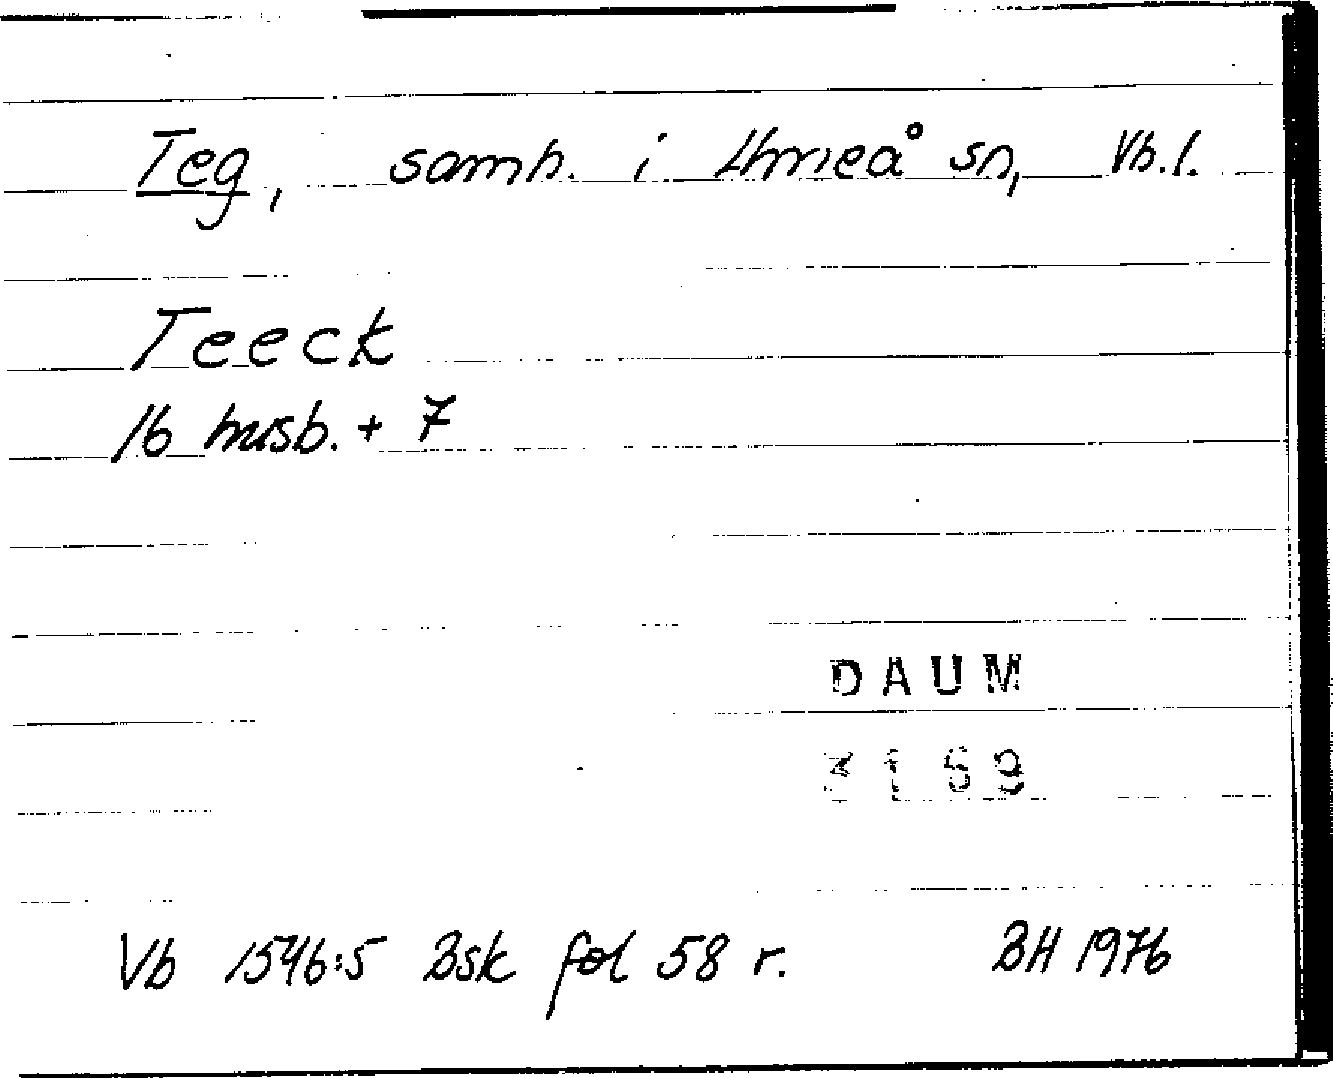 Teg, samh. i Umeå sn, Vb.l.
Teeck
16 husb. + 7
DAUM
3159
Vb 1546:5 Bsk fol 58 r. BH 1976